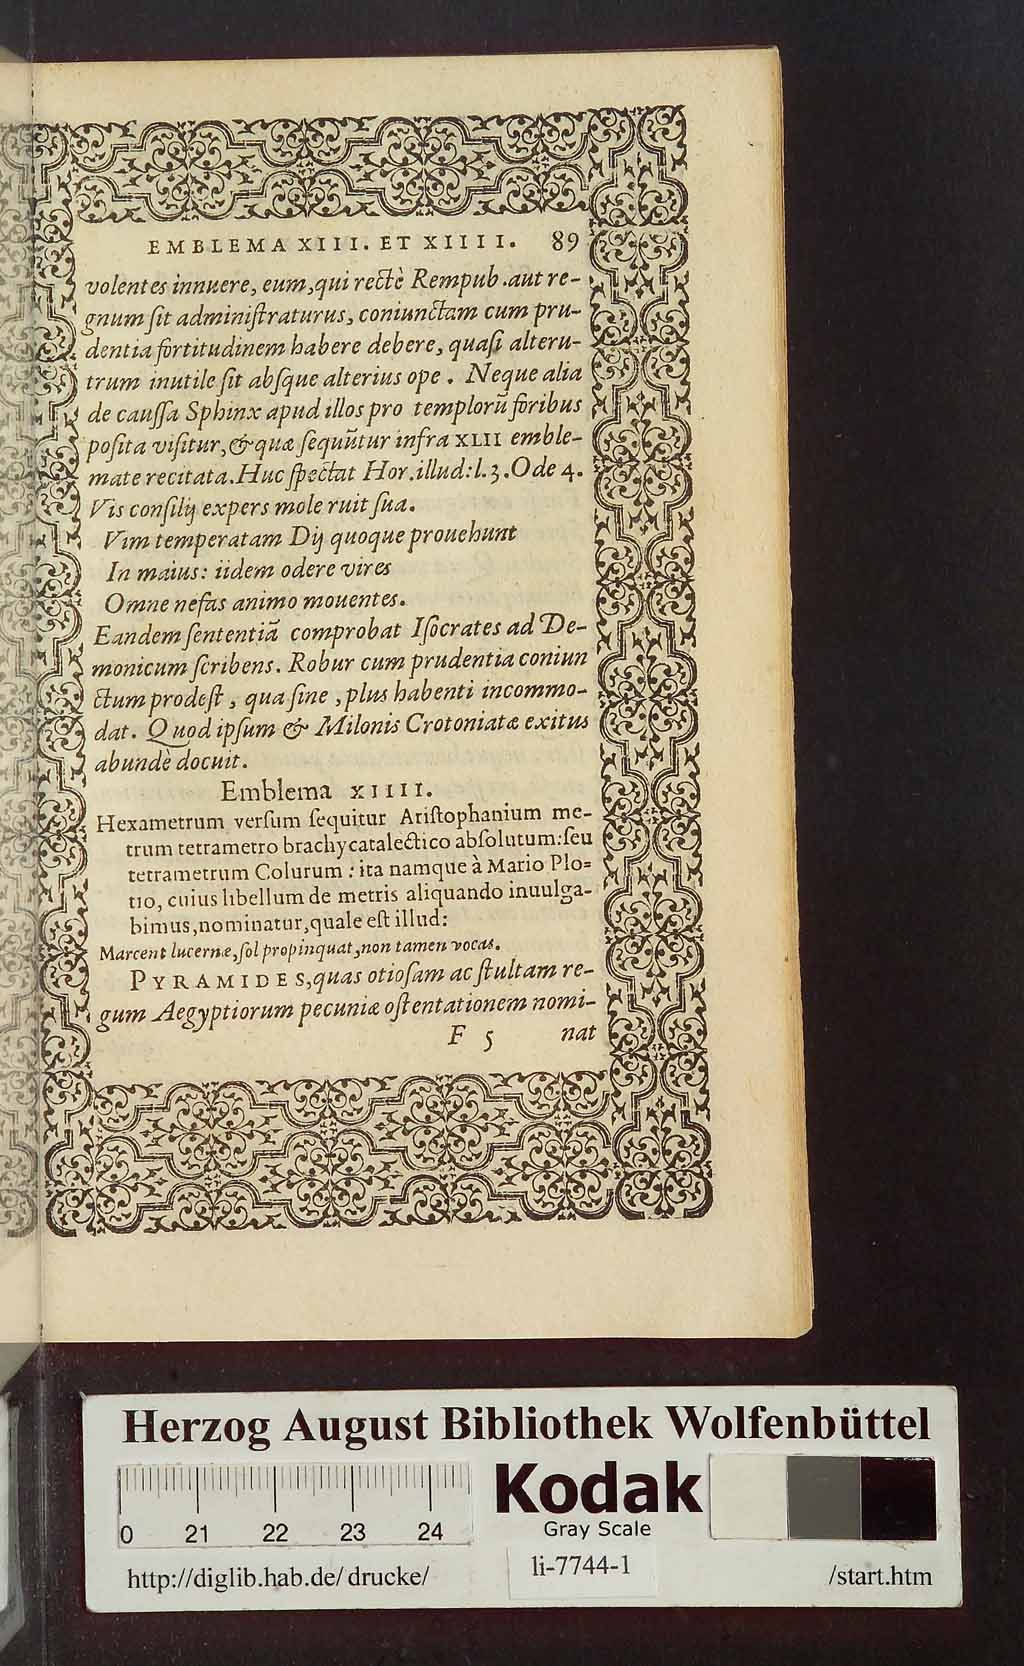 EMBLEMA XIII. ET XIIII. 89
volentes innuere, eum, qui rectè Rempub. aut re-
gnum ſit adminiſtraturus, coniunctam cum pru-
dentia fortitudinem habere debere, quaſi alteru-
trum inutile ſit abſque alterius ope. Neque alia
de cauſſa Sphinx apud illos pro templorū foribus
poſita viſitur, & quæ ſequūtur infra XLII emble-
mate recitata. Huc ſpectat Hor. illud: l. 3. Ode 4.
Vis conſilij expers mole ruit ſua.
Vim temperatam Dij quoque prouehunt
In maius: iidem odere vires
Omne nefas animo mouentes.
Eandem ſententiā comprobat Iſocrates ad De-
monicum ſcribens. Robur cum prudentia coniun
ctum prodeſt, qua ſine, plus habenti incommo-
dat. Quod ipſum & Milonis Crotoniatæ exitus
abundè docuit.
Emblema XIIII.
Hexametrum verſum ſequitur Ariſtophanium me-
trum tetrametro brachycatalectico abſolutum: ſeu
tetrametrum Colurum: ita namque à Mario Plo=
tio, cuius libellum de metris aliquando inuulga-
bimus, nominatur, quale eſt illud:
Marcent lucernæ, ſol propinquat, non tamen vocas.
PYRAMIDES, quas otioſam ac ſtultam re-
gum Aegyptiorum pecuniæ oſtentationem nomi-
F 5 nat
Herzog August Bibliothek Wolfenbüttel
0 21 22 23 24
Kodak
Gray Scale
http://diglib.hab.de/ drucke/
li-7744-1
/start.htm